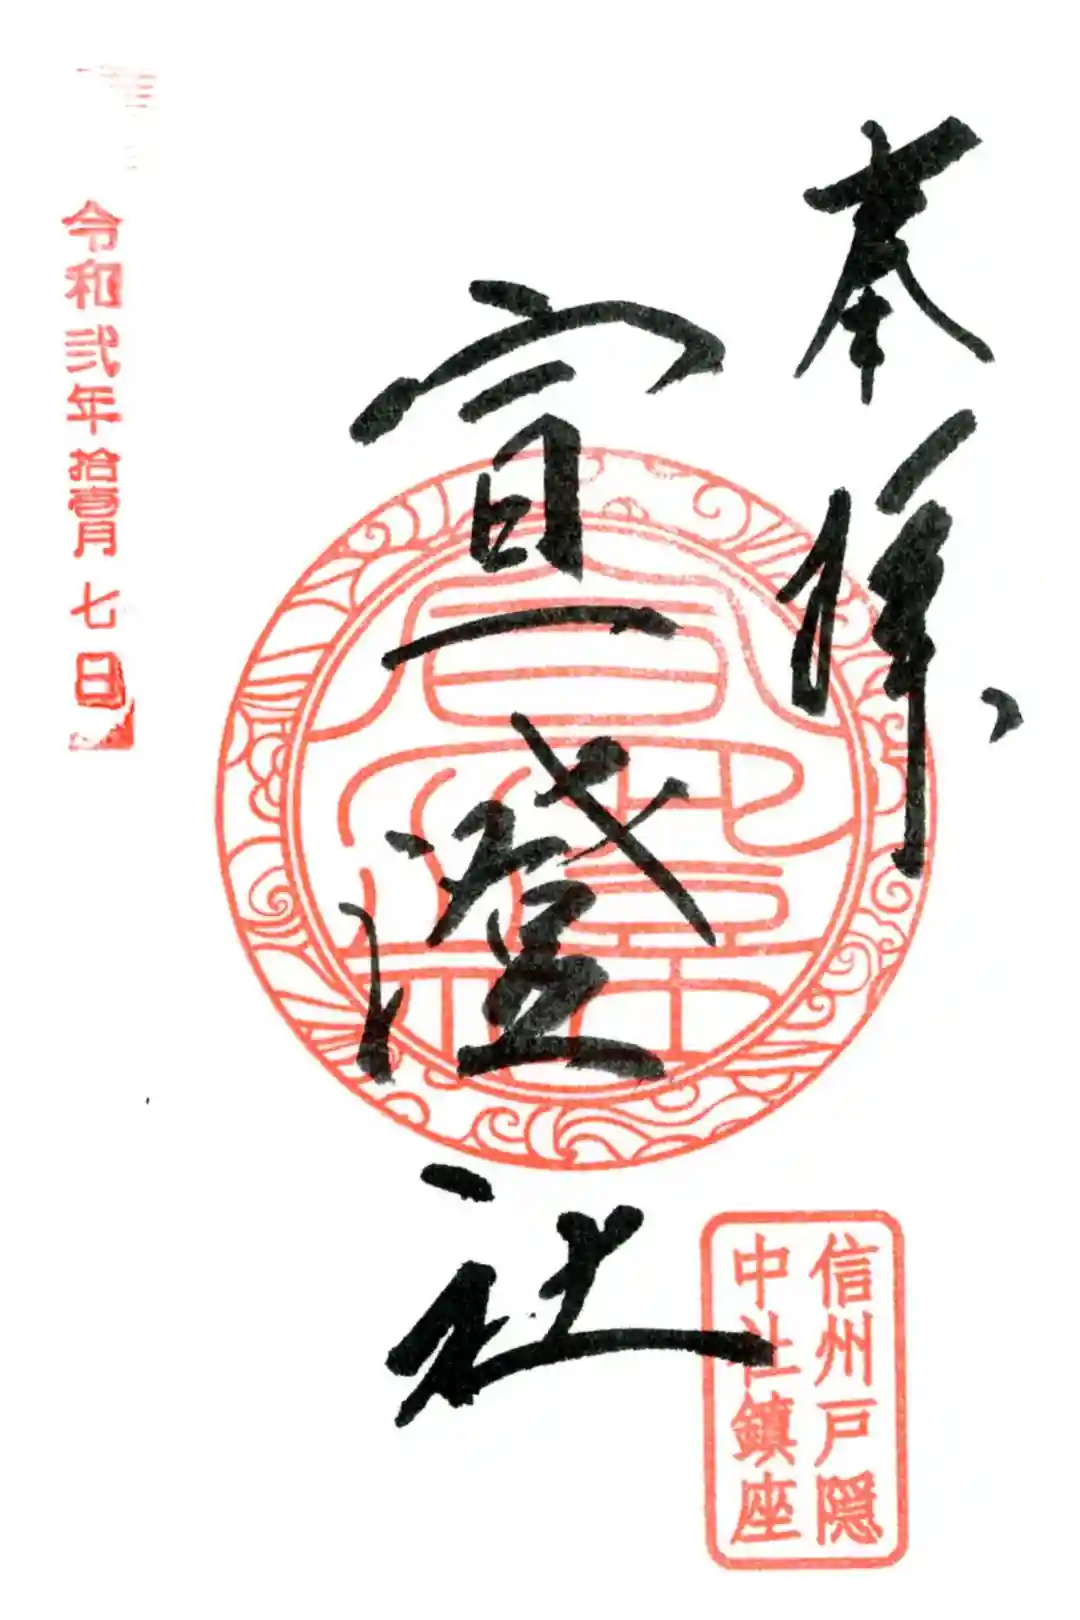 奉拝
宣澄社
信州戸隠
中社鎮座
令和弐年拾壹月七日